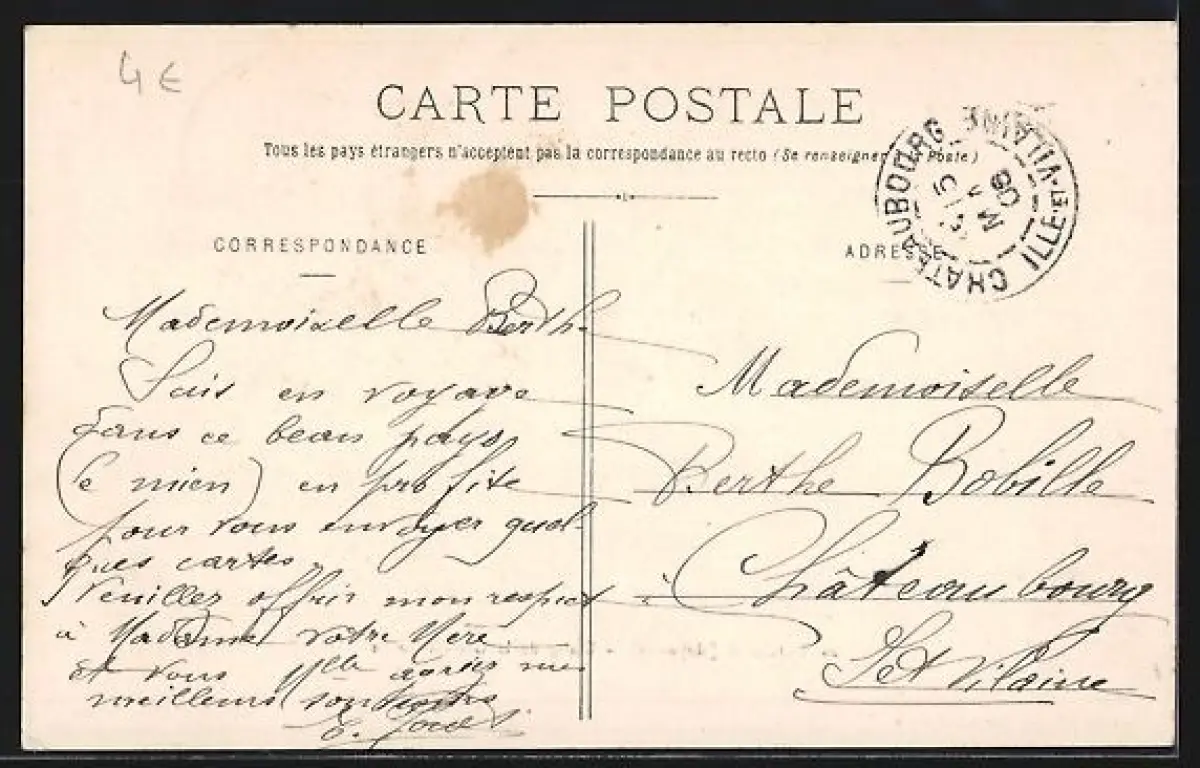 4 €
CARTE POSTALE
Tous les pays étrangers n'acceptent pas la correspondance au recto (Se renseigner Poste)
CORRESPONDANCE
ADRESSE
CHATEAUBOURG
ILLE-ET-VILAINE
08
Mademoiselle Berthe
Suis en voyage
dans ce beau pays
(le mien) en profite
pour vous envoyer quel-
ques cartes.
Veuillez offrir mon respect
à Madame votre Mère
et vous Mlle agréer mes
meilleurs
E.
Mademoiselle
Berthe Bobille
Châteaubourg
I et Vilaine